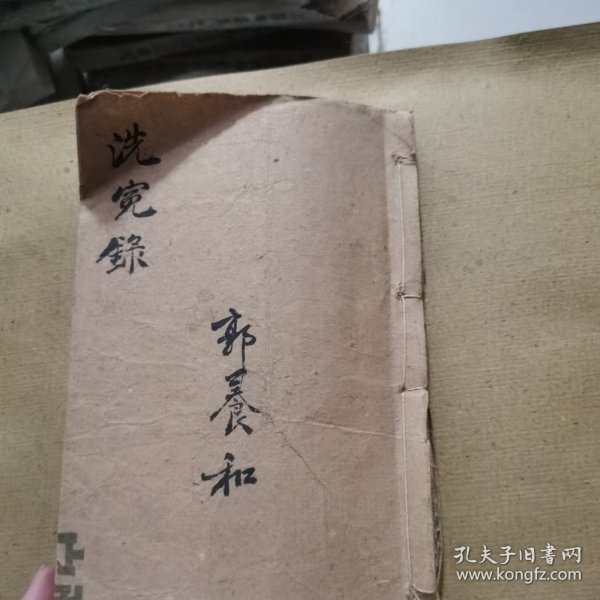 洗寃錄
郭養和
孔夫子旧书网
www.kongfz.com